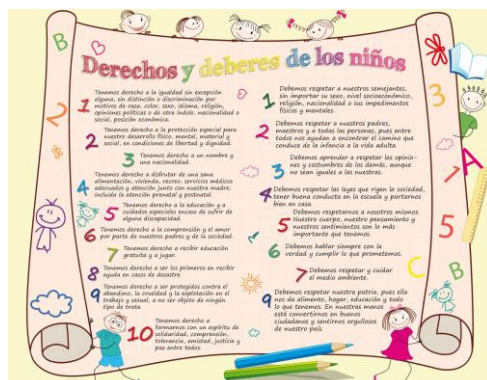 Derechos y deberes de los niños
1 Tenemos derecho a la igualdad sin excepción
alguna, sin distinción o discriminación por
motivos de raza, color, sexo, idioma, religión,
opiniones políticas o de otra índole, nacionalidad o
social, posición económica.
2 Tenemos derecho a la protección especial para
nuestro desarrollo físico, mental, material y
social, en condiciones de libertad y dignidad.
3 Tenemos derecho a un nombre y
una nacionalidad.
4 Tenemos derecho a disfrutar de una sana
alimentación, vivienda, recreo, servicios médicos
adecuados y atención junto con nuestra madre;
incluida la atención prenatal y postnatal.
5 Tenemos derecho a la educación y a
cuidados especiales en caso de sufrir de
alguna discapacidad.
6 Tenemos derecho a la comprensión y el amor
por parte de nuestros padres y de la sociedad.
7 Tenemos derecho a recibir educación
gratuita y a jugar.
8 Tenemos derecho a ser los primeros en recibir
ayuda en casos de desastre.
9 Tenemos derecho a ser protegidos contra el
abandono, la crueldad y la explotación en el
trabajo y sexual, a no ser objeto de ningún
tipo de trata.
10 Tenemos derecho a
formarnos con un espíritu de
solidaridad, comprensión,
tolerancia, amistad, justicia y
paz entre todos.
1 Debemos respetar a nuestros semejantes,
sin importar su sexo, nivel socioeconómico,
religión, nacionalidad o sus impedimentos
físicos y mentales.
2 Debemos respetar a nuestros padres,
maestros y a todas las personas, pues entre
todos nos ayudan a encontrar el camino que
conduce de la infancia a la vida adulta.
3 Debemos aprender a respetar las opinio-
nes y costumbres de los demás, aunque
no sean iguales a las nuestras.
4 Debemos respetar las leyes que rigen la sociedad,
tener buena conducta en la escuela y portarnos
bien en casa.
5 Debemos respetarnos a nosotros mismos.
Nuestro cuerpo, nuestro pensamiento y
nuestros sentimientos son lo más
importante que tenemos.
6 Debemos hablar siempre con la
verdad y cumplir lo que prometemos.
7 Debemos respetar y cuidar
el medio ambiente.
9 Debemos respetar nuestra patria, pues ella
nos da alimento, hogar, educación y todo
lo que tenemos. En nuestras manos
está convertirnos en buenos
ciudadanos y sentirnos orgullosos
de nuestro país.
B
2
3
1
7
A
5
C
B